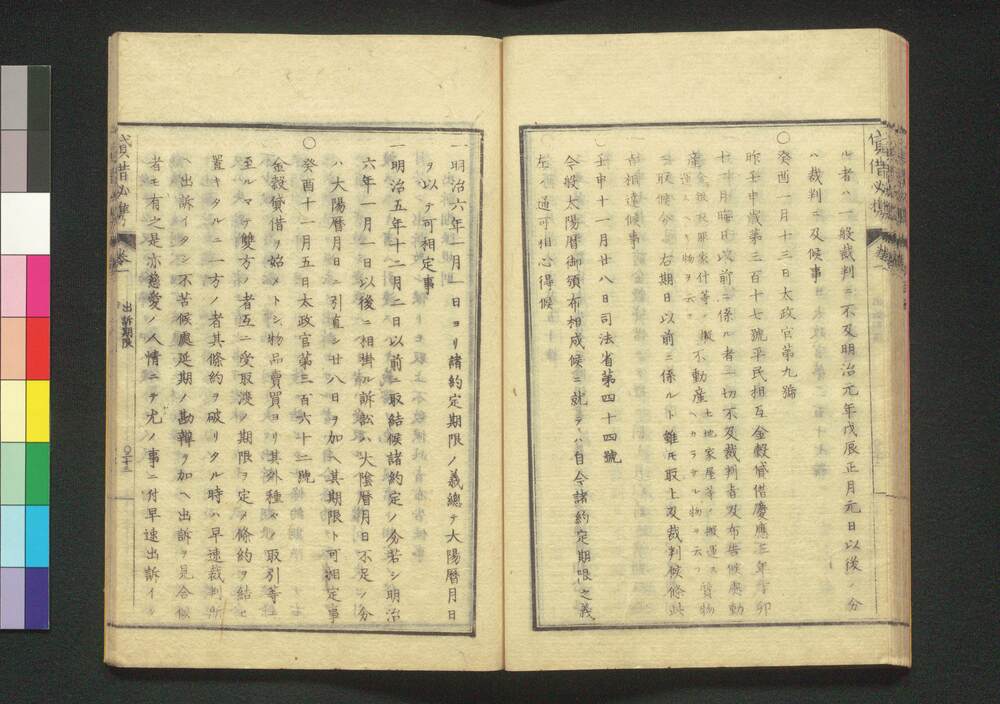 ル者ハ一般裁判ニ不及明治元年戊辰正月元日以後ノ分
ハ裁判ニ及候事
〇癸酉一月十三日太政官第九號
昨壬申歳第三百十七號平民相互金穀貸借慶應三年丁卯
十二月晦日以前ニ係ル者ハ一切不及裁判旨及布告候處動
産 不動産 土地家屋等ノ搬運ス 質物
取候分 右期日以前ニ係ルト雖モ取上及裁判候條此
旨相達候事
〇壬申十一月廿八日司法省第四十四號
今般太陽暦御頒布相成候ニ就テハ自今諸約定期限之義
左ノ通可相心得候
一明治六年一月一日ヨリ諸約定期限ノ義總テ大陽暦月日
ヲ以テ可相定事
一明治五年十二月二日以前ニ取結候諸約定ノ分若シ明治
六年一月一日以後ニ相掛ル訴訟ハ大陰暦月日不足ノ分
ハ大陽暦月日ニ引直シ廿八日ヲ加ヘ其期限ト可相定事
〇癸酉十一月五日太政官第三百六十二號
金穀貸借ヲ始メトシ物品賣買ヨリ其外種々ノ取引等ニ
至ルマテ雙方ノ者互ニ受取渡ノ期限ヲ定メ條約ヲ結ヒ
置キタルニ一方ノ者其條約ヲ破リタル時ハ早速裁判所
ヘ出訴イタシ不苦候處延期ノ勘辨ヲ加ヘ出訴ヲ見合候
者モ有之是亦慈愛ノ人情ニテ尤ノ事ニ付早速出訴イタ
出訴期限
〇十三